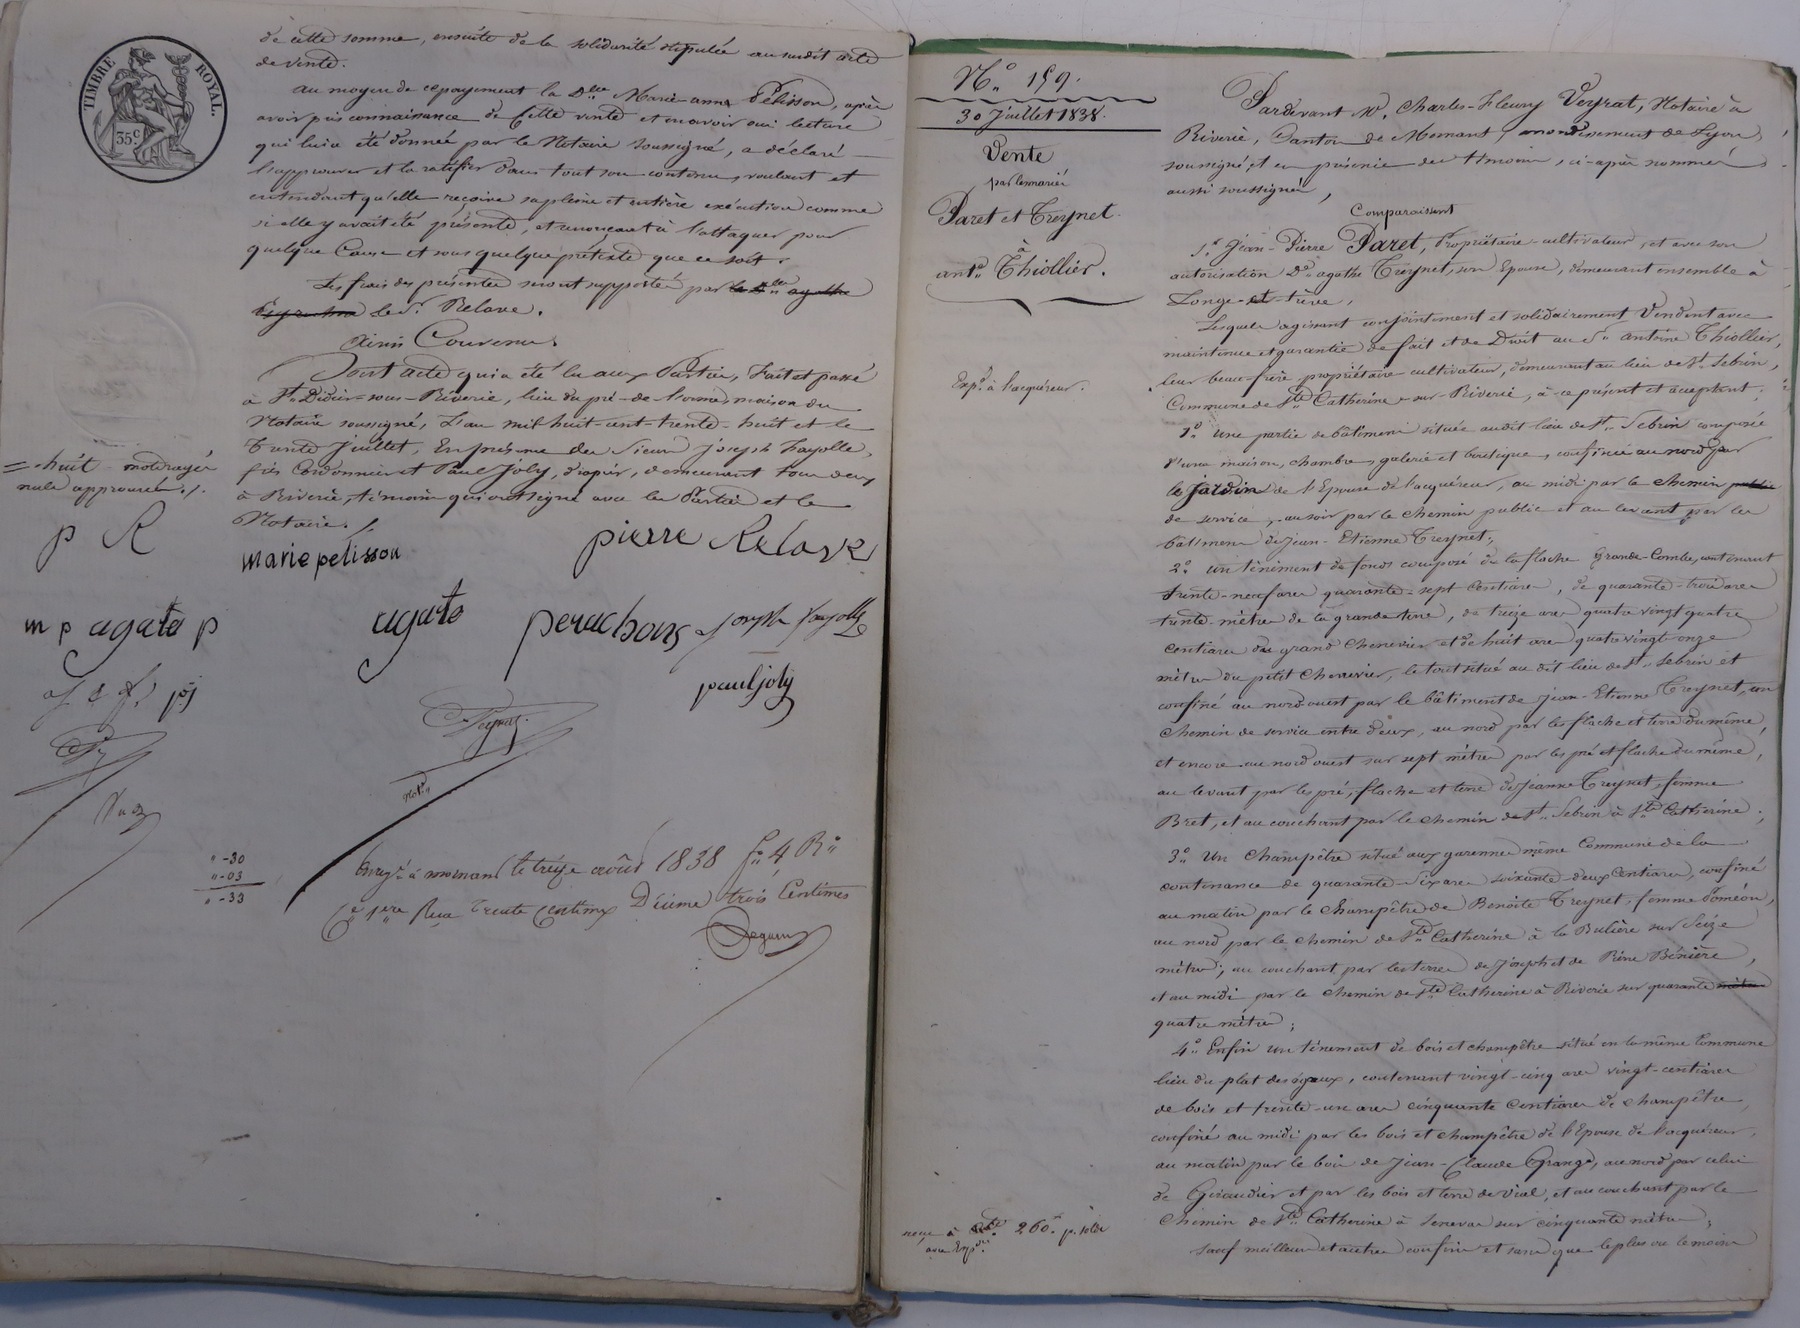 TIMBRE ROYAL.
35c
de cette somme, ensuite de la solidarité stipulée au susdit acte
de vente.
Au moyen de ce payement la Dlle Marie-anne Pélisson, après
avoir pris connaissance de Cette vente et en avoir oui lecture
qui lui a été donnée par le Notaire soussigné, a déclaré
l'approuver et la ratifier dans tout son contenu, voulant et
entendant qu'elle reçoive sa pleine et entière exécution comme
si elle y avait été présente, et renonçant à l'attaquer pour
quelque Cause et sous quelque prétexte que ce soit.
Les frais des présentes seront supportés par la Dlle agathe
Le Sr. Relave.
Ainsi Convenu.
Dont acte qui a été lu aux Parties, Fait et passé
à St. Didier-sous-Riverie, lieu du pré-de-l'orme, maison du
Notaire soussigné, L'an mil huit-cent-trente-huit et le
Trente Juillet, En présence des Sieurs Joseph Fayolle,
fils Cordonnier et Paul Joly, drapier, demeurant tous deux
à Riverie, témoins qui ont signé avec les Parties et le
Notaire./.
= huit mots rayés
nuls approuvés./.
p R
marie pelisson
pierre Relave
m p agate p
agate perachons
Joseph fayolle
J & f. pj
paul joly
Veyrat
Not.re
" -30
" -03
" -33
Enregé. à mornant le treize août 1838 fo. 4 Ro.
Ce 1ere Reçu Trente Centimes Décime trois Centimes
N.o 159.
30 Juillet 1838.
Vente
par les mariés
Paret et Treynet
à
ant.e Thiollier.
Exp.on à l'acquéreur.
Pardevant Me. Charles-Fleury Veyrat, Notaire à
Riverie, Canton de Mornant, arrondissement de Lyon,
soussigné, et en présence des témoins, ci-après nommés
aussi soussignés,
Comparaissent
1.o Jean-Pierre Paret, Propriétaire-cultivateur, et avec son
autorisation De. agathe Treynet, son Epouse, demeurant ensemble à
Longe-et-trève,
Lesquels agissant conjointement et solidairement Vendent avec
maintenue et garantie de fait et de Droit au Sr. Antoine Thiollier,
leur beau-frère, propriétaire-cultivateur, demeurant au lieu de St. Sebrin,
Commune de Ste Catherine-sur-Riverie, à ce présent et acceptant;
1.o Une partie de bâtiment située audit lieu de St. Sebrin composée
d'une maison, chambre, galerie et boutique, confinée au nord par
le jardin de l'Epouse de l'acquéreur, au midi par le chemin public
de service, au soir par le chemin public et au levant par les
bâtiments de Jean-Etienne Treynet;
2.o Un tènement de fonds composé de la flache Grande-Combe, contenant
trente-neuf ares quarante-sept Centiares, de quarante-trois ares
trente-mètres de la grande terre, de treize ares quatre vingt quatre
Centiares du grand Chenevier et de huit ares quatre vingt-onze
mètres du petit Chenevier, le tout situé au dit lieu de St. Sebrin et
confiné au nord-ouest par le bâtiment de Jean-Etienne Treynet, un
chemin de service entre deux, au nord par les flache et terre du même,
et encore au nord ouest sur sept mètres par les pré et flache du même,
au levant par les pré, flache et terre de Jeanne Treynet, femme
Bret, et au couchant par le chemin de St. Sebrin à Ste Catherine;
3.o Un Champêtre situé aux garennes même Commune de la
contenance de quarante-six ares soixante-deux Centiares, confiné
au matin par le Champêtre de Benoîte Treynet, femme Poméon,
au nord par le chemin de Ste Catherine à la Bulière sur Seize
mètres; au couchant par les terres de Joseph et de Pierre Bénière,
et au midi par le chemin de Ste Catherine à Riverie sur quarante mètres
quatre mètres;
4.o Enfin un tènement de bois et champêtre situé en la même Commune
lieu du plat des égaux, contenant vingt-cinq ares vingt-centiares
de bois et trente-un ares cinquante Centiares de champêtre,
confiné au midi par les bois et champêtre de l'Epouse de l'acquéreur,
au matin par le bois de Jean-Claude Grange, au nord par celui
de Giraudier et par les bois et terre de Vial, et au couchant par le
chemin de Ste. Catherine à Senevas sur cinquante mètres;
Sauf meilleurs et autres confins et sans que le plus ou le moins
260. p. solde
avec Exp.on